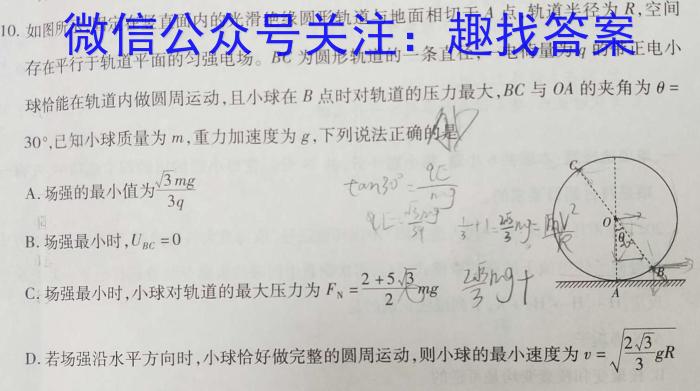 10. 如图所 直面内的光滑绝缘圆形轨道与地面相切于 A 点,轨道半径为 R,空间
微信公众号关注：趣找答案
存在平行于轨道平面的匀强电场。BC 为圆形轨道的一条直径, 电荷量为 q 的带正电小
球恰能在轨道内做圆周运动,且小球在 B 点时对轨道的压力最大,BC 与 OA 的夹角为 θ =
30°,已知小球质量为 m,重力加速度为 g,下列说法正确的是
A. 场强的最小值为 √3mg/3q
B. 场强最小时,U_BC = 0
C. 场强最小时,小球对轨道的最大压力为 F_N = (2+5√3)/2 mg
D. 若场强沿水平方向时,小球恰好做完整的圆周运动,则小球的最小速度为 v = √(2√3/3 gR)
tan30° = qE/mg
C
O
θ
B
A